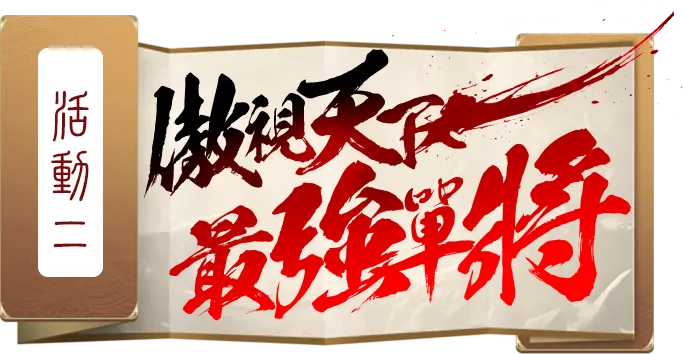 活動二
傲視天下
最強單將